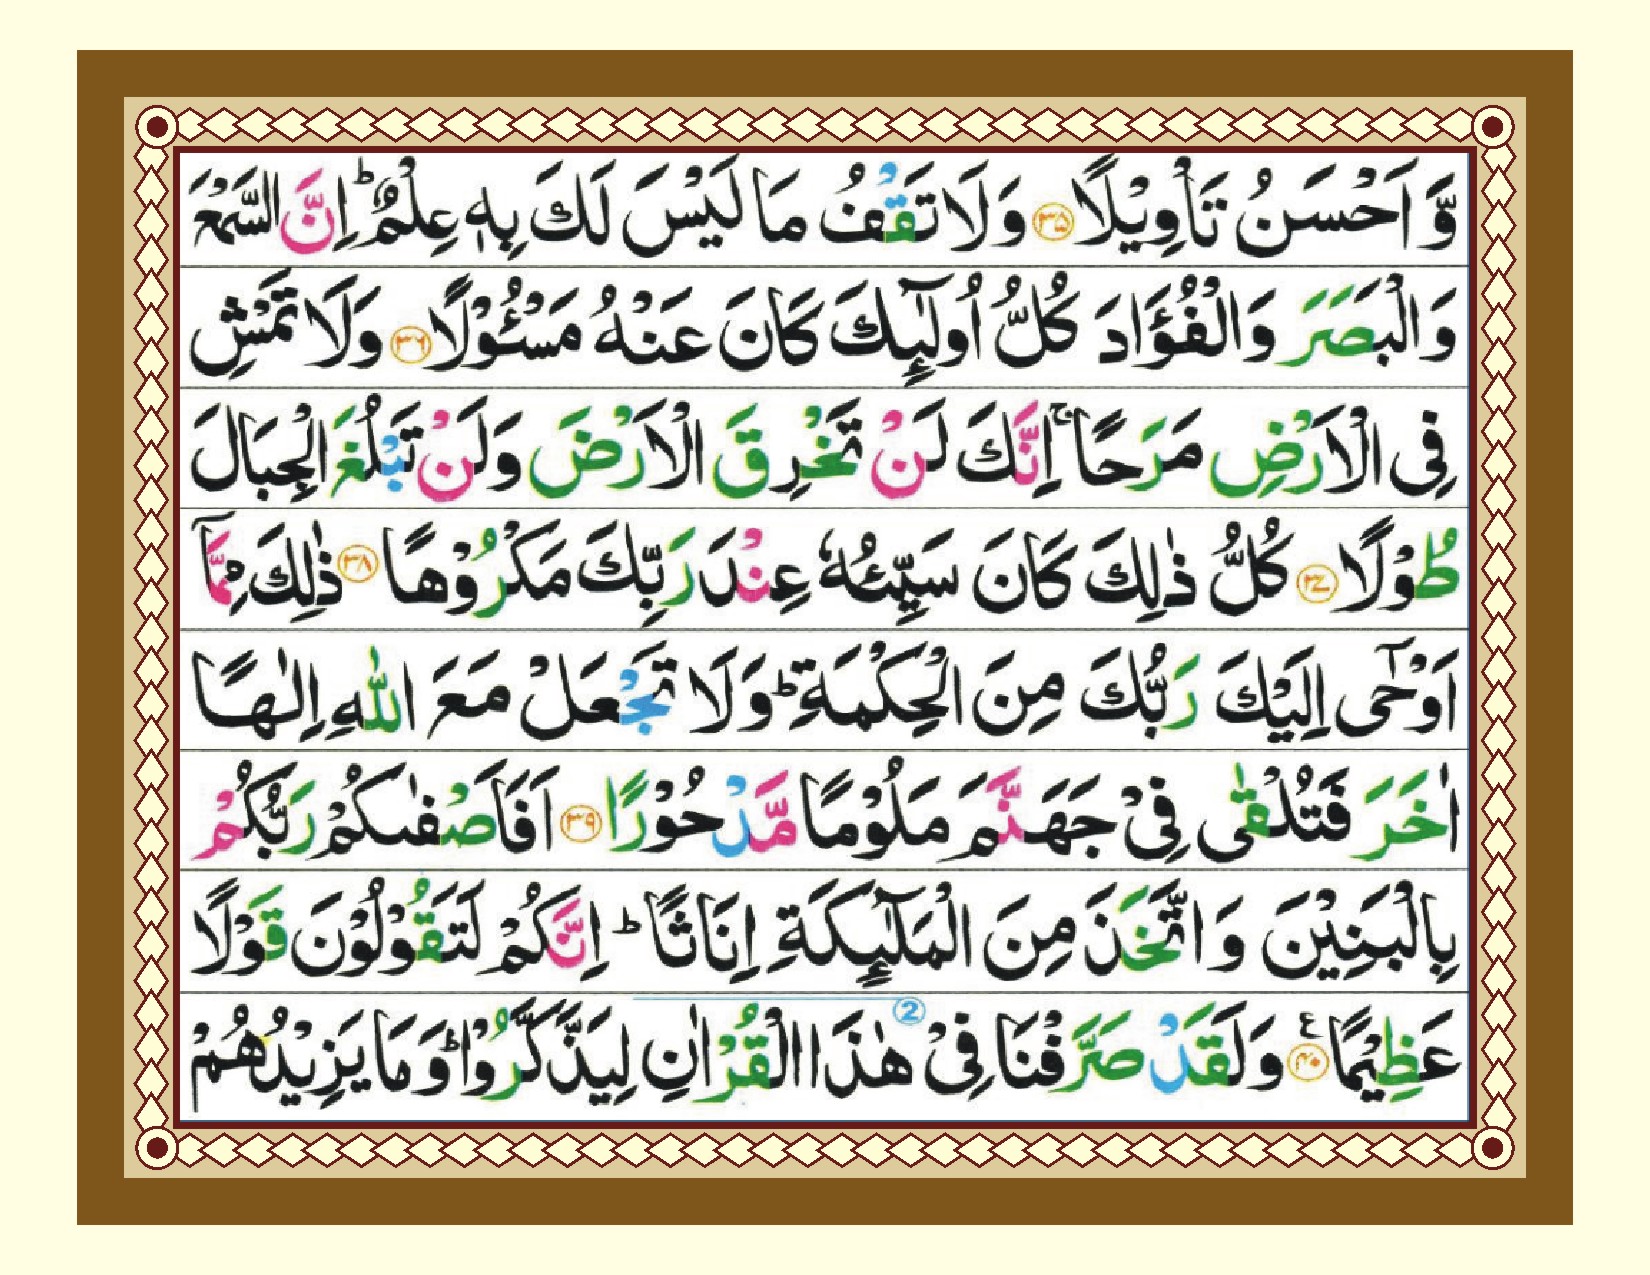 وَّ اَحْسَنُ تَاْوِيْلًا ۝۳۵ وَلَا تَقْفُ مَا لَيْسَ لَكَ بِهٖ عِلْمٌ ؕ اِنَّ السَّمْعَ
وَالْبَصَرَ وَالْفُؤَادَ كُلُّ اُولٰٓئِكَ كَانَ عَنْهُ مَسْـُٔوْلًا ۝۳۶ وَلَا تَمْشِ
فِى الْاَرْضِ مَرَحًا ۚ اِنَّكَ لَنْ تَخْرِقَ الْاَرْضَ وَلَنْ تَبْلُغَ الْجِبَالَ
طُوْلًا ۝۳۷ كُلُّ ذٰلِكَ كَانَ سَيِّئُهٗ عِنْدَ رَبِّكَ مَكْرُوْهًا ۝۳۸ ذٰلِكَ مِمَّآ
اَوْحٰٓى اِلَيْكَ رَبُّكَ مِنَ الْحِكْمَةِ ؕ وَلَا تَجْعَلْ مَعَ اللّٰهِ اِلٰهًا
اٰخَرَ فَتُلْقٰى فِىْ جَهَنَّمَ مَلُوْمًا مَّدْحُوْرًا ۝۳۹ اَفَاَصْفٰىكُمْ رَبُّكُمْ
بِالْبَنِيْنَ وَ اتَّخَذَ مِنَ الْمَلٰٓئِكَةِ اِنَاثًا ؕ اِنَّكُمْ لَتَقُوْلُوْنَ قَوْلًا
عَظِيْمًا ۝۴۰ ع وَلَقَدْ صَرَّفْنَا فِىْ 2 هٰذَا الْقُرْاٰنِ لِيَذَّكَّرُوْا ؕ وَمَا يَزِيْدُهُمْ